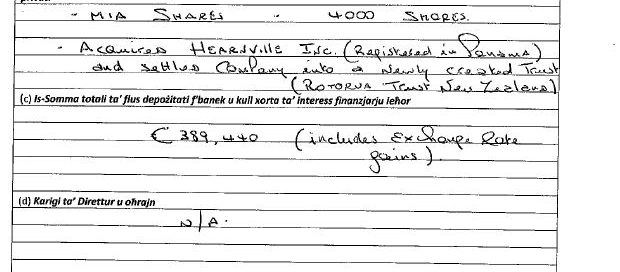 - MIA SHARES - 4000 SHARES.
- Acquired HEARNVILLE INC. (Registered in Panama)
and settled Company into a newly created Trust
(ROTORUA Trust New Zealand)
(c) Is-Somma totali ta' flus depożitati f'banek u kull xorta ta' interess finanzjarju ieħor
€ 389,440 (includes Exchange Rate
gains).
(d) Karigi ta' Direttur u oħrajn
N/A.